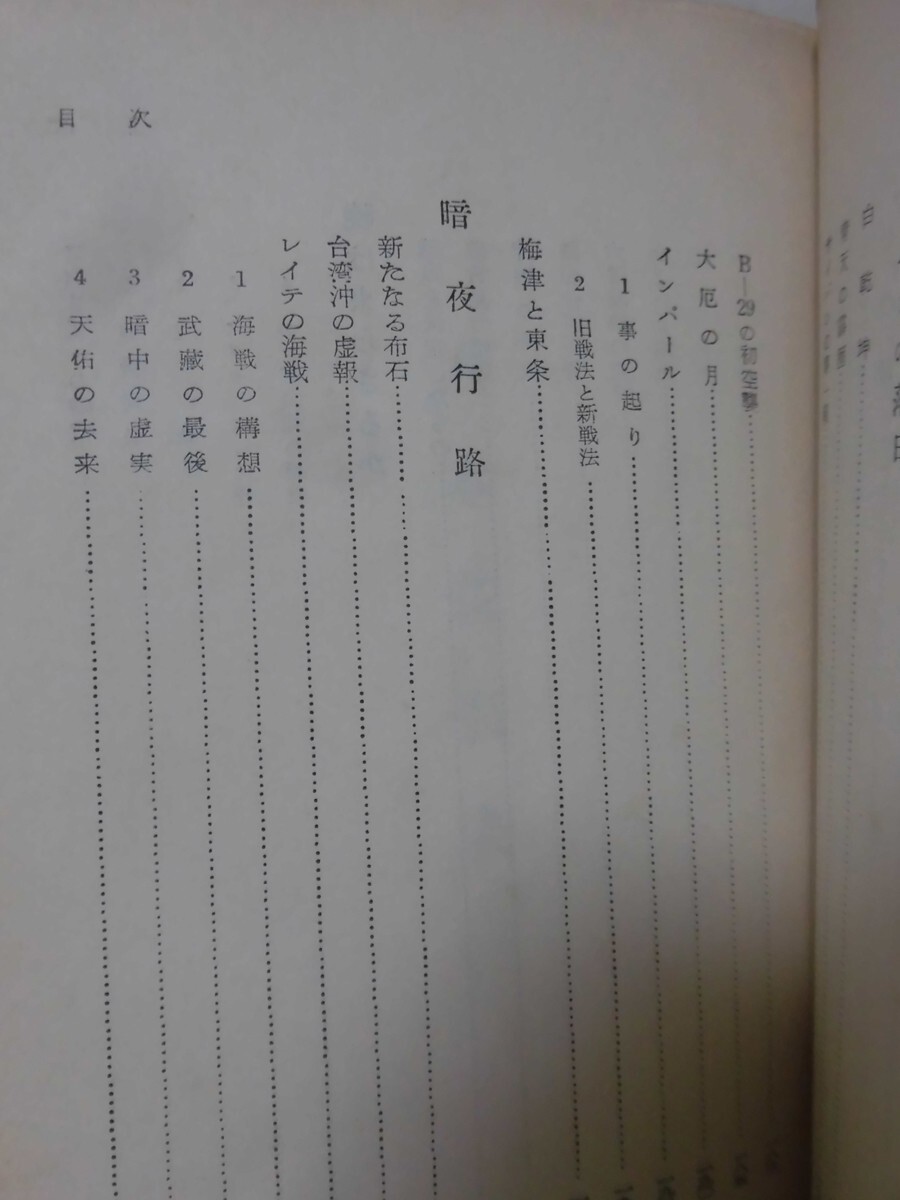 目次
B―29の初空撃
大厄の月
インパール
1 事の起り
2 旧戦法と新戦法
梅津と東条
暗夜行路
新たなる布石
台湾沖の虚報
レイテの海戦
1 海戦の構想
2 武蔵の最後
3 暗中の虚実
4 天佑の去来